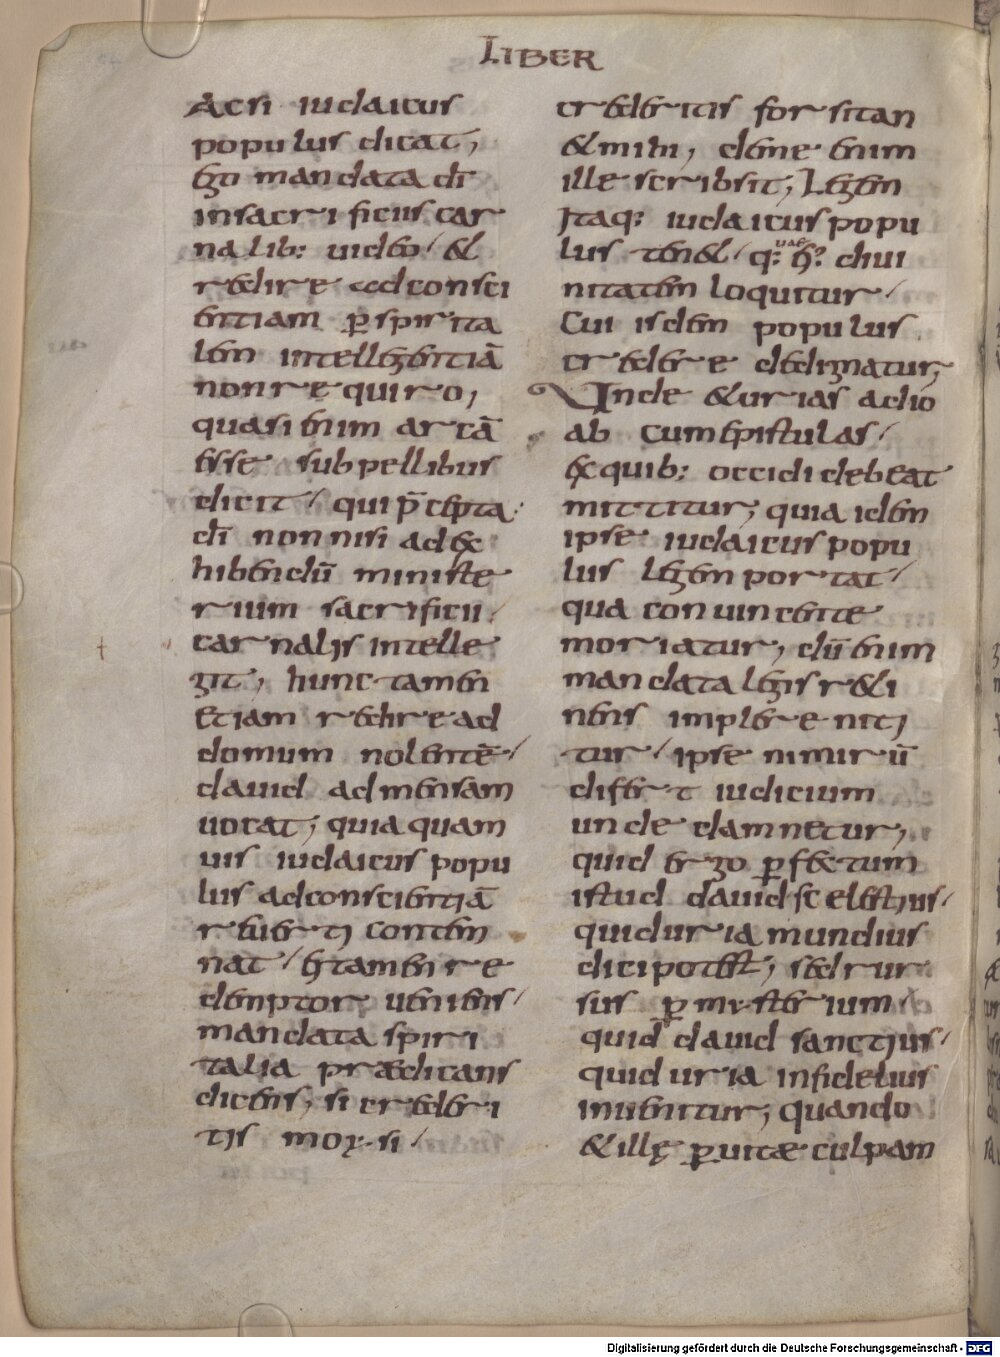 LIBER
Acsi iudaicus
populus dicat,
ego mandata di͞
insacrificiis car
nalib: uideo / &
redire adconsci
entiam ꝑspirita
lem intellegentiā
nonrequiro,
quasi enim arcā
esse subpellibus
dicit / qui p̄cepta
di͞ non nisi adex
hibendū ministe
rium sacrificii /
carnalis intelle
git, hunc tamen
etiam redire ad
domum nolentē /
dauid admensam
uocat, quia quam
uis iudaicus popu
lus adconscientiā
reuerti contem
nat / ei tamen re
demptor ueniens /
mandata spiri
talia prædicans
dicens, si crederi
tis moysi /
crederitis forsitan
& mihi, deme enim
ille scribsit, Legem
Itaq: iudaicus popu
lus ten& / q: eiꝰ diui
uae
nitatem loquitur /
Cui isdem populus
credere dedignatur,
Unde & urias adio
ab cum epistulas /
ex quib: occidi debeat
mittitur, quia idem
ipse iudaicus popu
lus legem portat /
qua conuincente
moriatur, dū enim
mandata legis r&i
nens implere niti
tur / ipse nimirū
differt iudicium
unde damnetur,
quid ergo ꝑfectum
istud dauid scelestius /
quid uria mundius
dici potest, sed rur
sus ꝑ mysterium /
quid dauid sanctius /
quid uria infidelius
inuenitur, quando
& illę ꝑ uitæ culpam
Digitalisierung gefördert durch die Deutsche Forschungsgemeinschaft - DFG